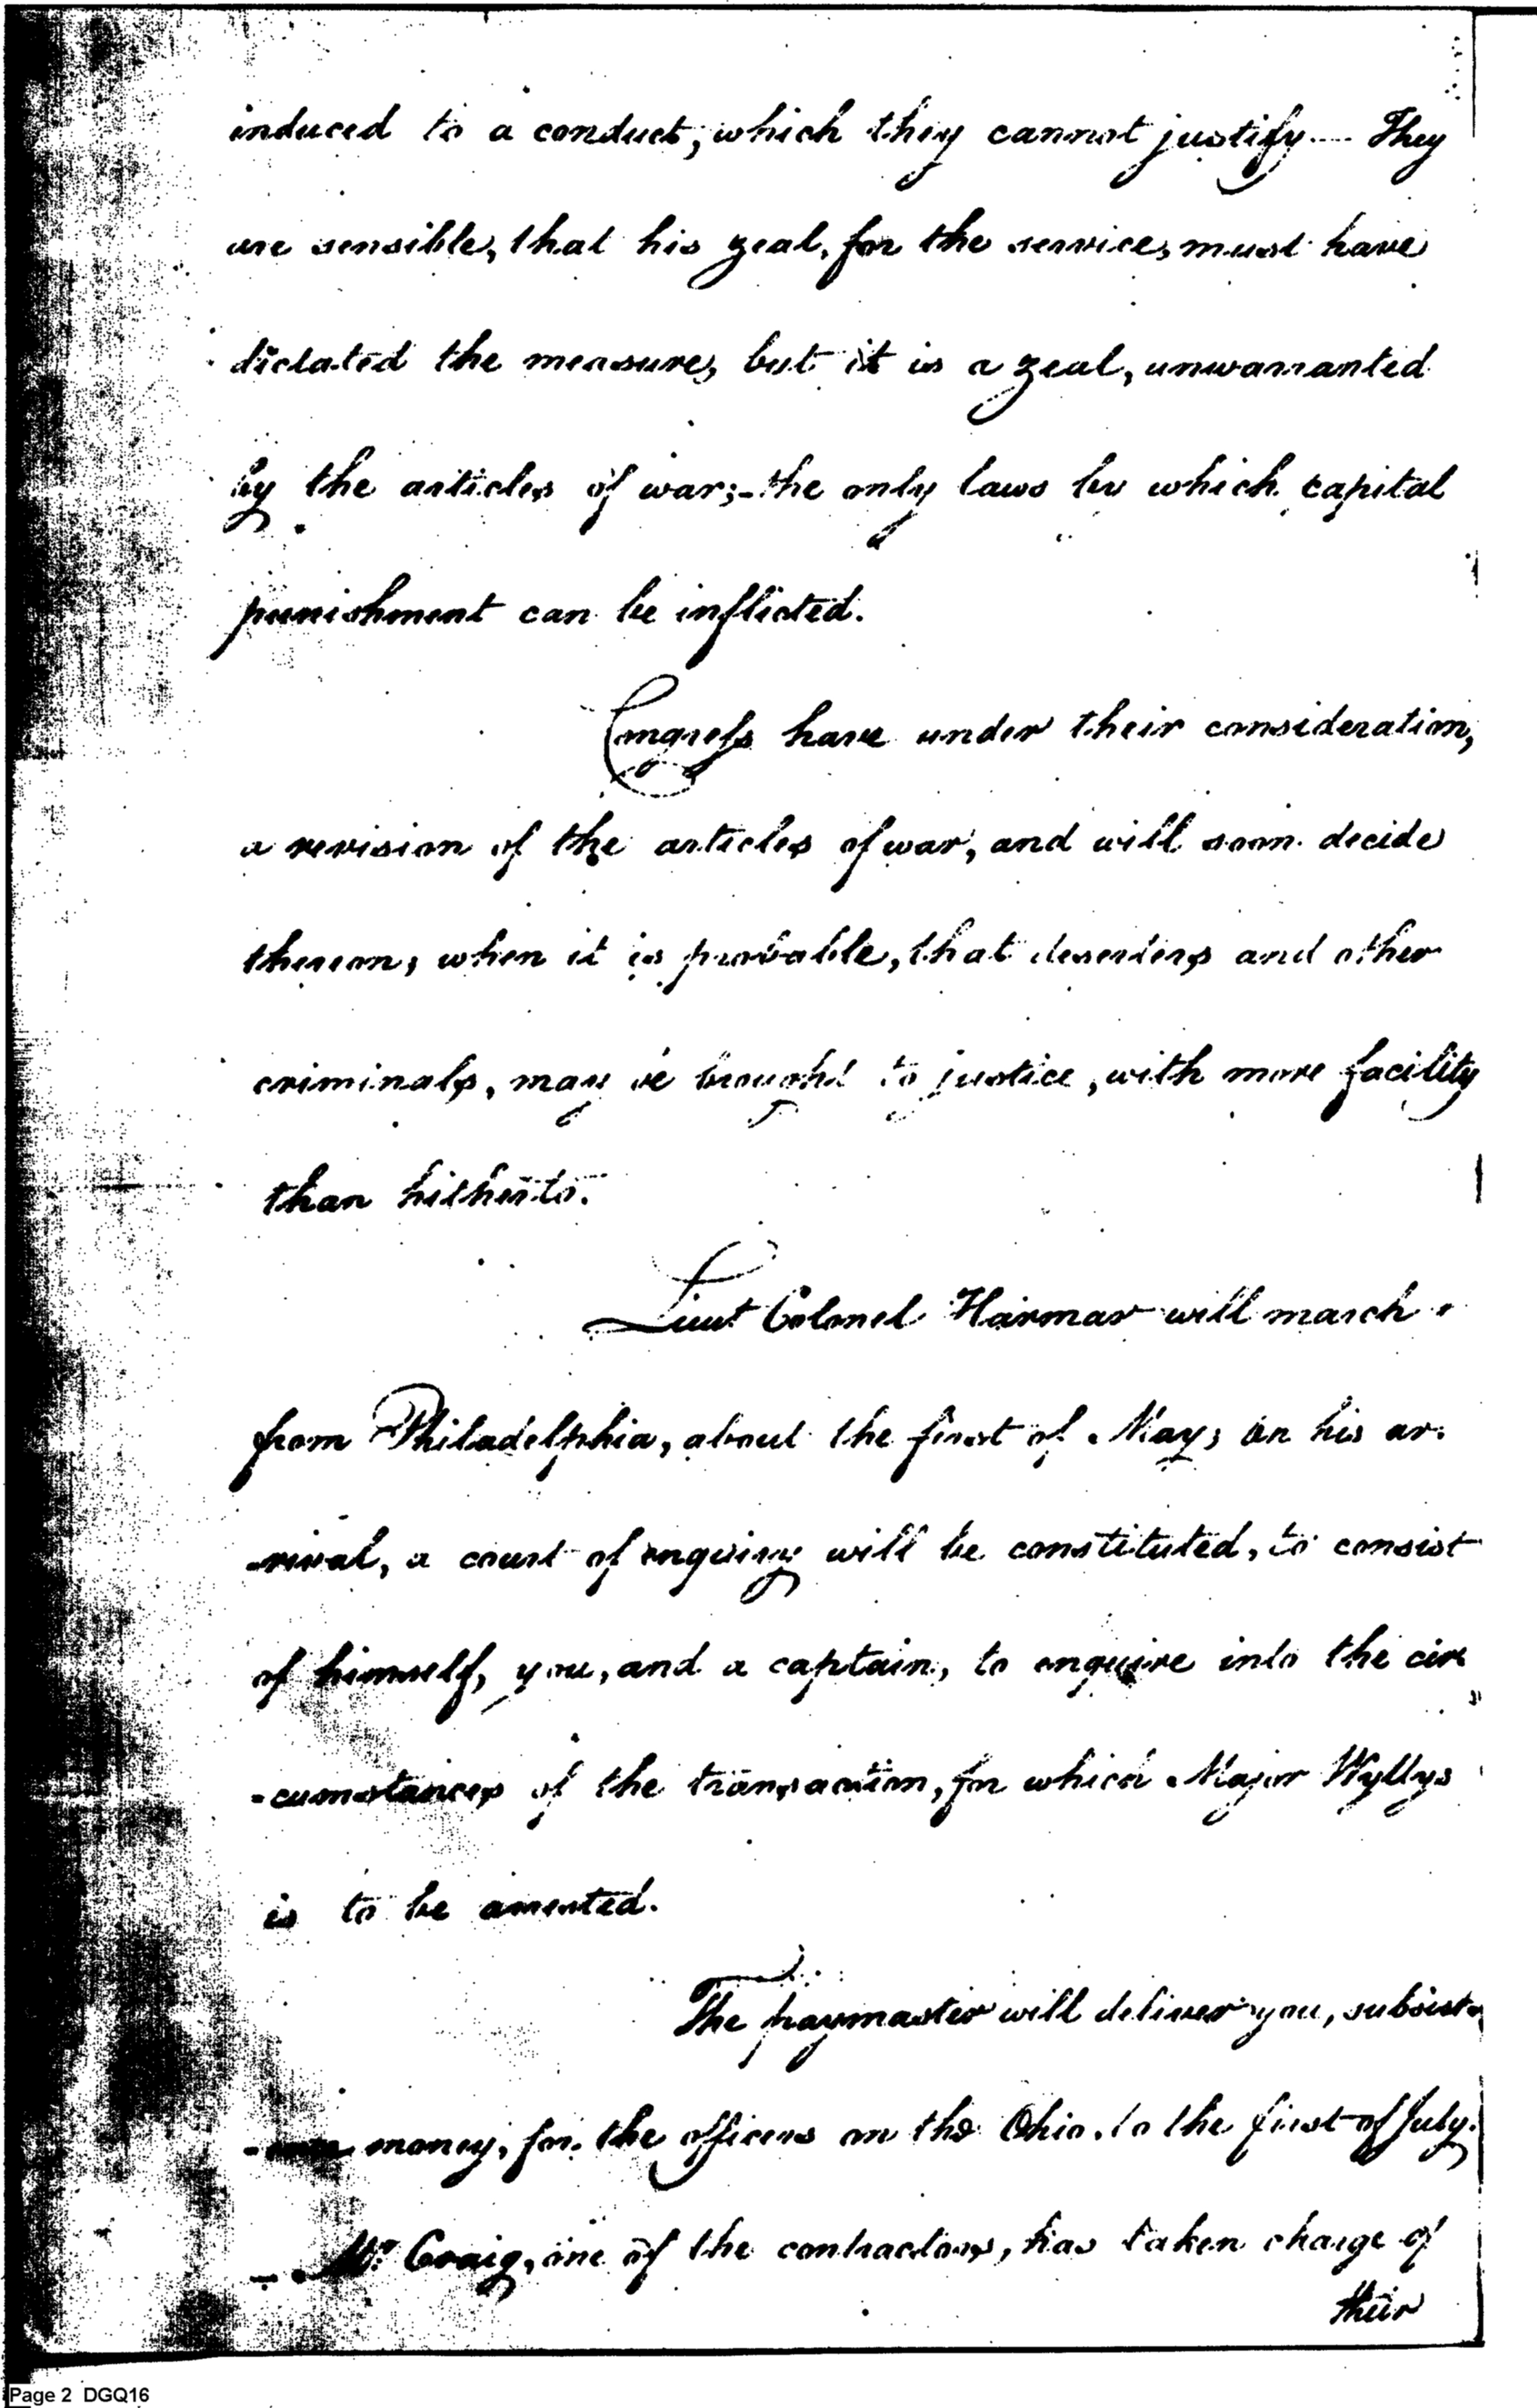 induced to a conduct, which they cannot justify.... They
are sensible, that his zeal, for the service, must have
dictated the measure, but it is a zeal, unwarranted
by the articles of war;- the only laws by which capital
punishment can be inflicted.
Congress have under their consideration,
a revision of the articles of war, and will soon decide
thereon, when it is probable, that deserters and other
criminals, may be brought to justice, with more facility
than hitherto.
Lieut Colonel Harmar will march
from Philadelphia, about the first of May, on his ar-
-rival, a court of enquiry will be constituted, to consist
of himself, you, and a captain, to enquire into the cir
-cumstances of the transaction, for which Major Wyllys
is to be arrested.
The paymaster will deliver you, subsist-
-ence money, for the officers on the Ohio, to the first of July.
Mr. Craig, one of the contractors, has taken charge of
their
Page 2 DGQ16